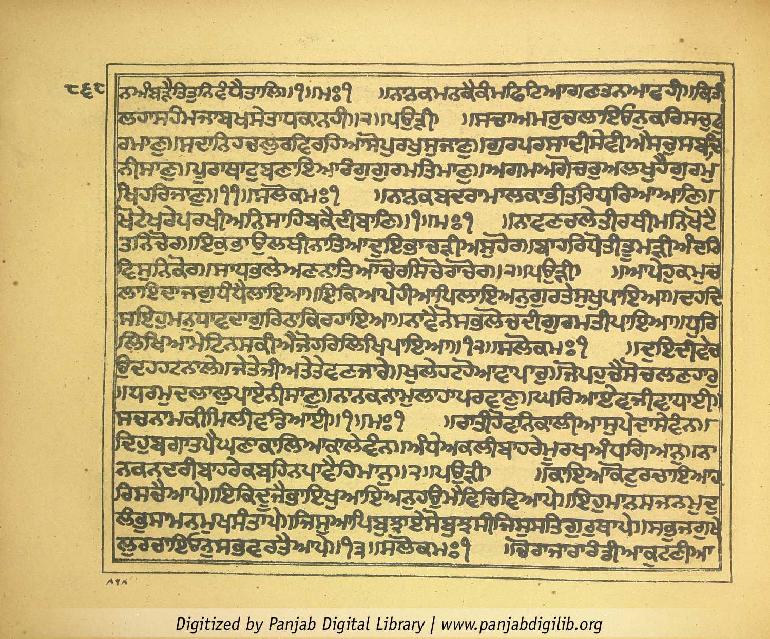 ੮੬੮
ਤਾਲਿ॥੧॥ਮਃ੧ ॥ਨਾਨਕਮਨਕੈਕੰਮਿਫਿਟਿਆਗਣਤਨਆਵਹੀ॥ਕਿਤੀ
ਲਹਾਸਹੰਮਜਾਬਖਸੇਤਾਧਕਾਨਹੀ॥੨॥ਪਉੜੀ ॥ਸਚਾਅਮਰੁਚਲਾਇਓਨੁਕਰਿਸਚੁਫੁ
ਰਮਾਣੁ॥ਸਦਾਨਿਹਚਲੁਰਵਿਰਹਿਆਸੋਪੁਰਖੁਸੁਜਾਣੁ॥ਗੁਰਪਰਸਾਦੀਸੇਵੀਐਸਚੁਸਬਦਿ
ਨੀਸਾਣੁ॥ਪੂਰਾਥਾਟੁਬਣਾਇਆਰੰਗੁਗੁਰਮਤਿਮਾਣੁ॥ਅਗਮਅਗੋਚਰੁਅਲਖੁਹੈਗੁਰਮੁ
ਖਿਹਰਿਜਾਣੁ॥੧੧॥ਸਲੋਕਮਃ੧ ॥ਨਾਨਕਬਦਰਾਮਾਲਕਾਭੀਤਰਿਧਰਿਆਆਣਿ॥
ਖੋਟੇਖਰੇਪਰਖੀਅਨਿਸਾਹਿਬਕੈਦੀਬਾਣਿ॥੧॥ਮਃ੧ ॥ਨਾਵਣਚਲੇਤੀਰਥੀਮਨਿਖੋਟੈ
ਤਨਿਚੋਰ॥ਇਕੁਭਾਉਲਥੀਨਾਤਿਆਦੁਇਭਾਚੜੀਅਸੁਹੋਰ॥ਬਾਹਰਿਧੋਤੀਤੂਮੜੀਅੰਦਰਿ
ਵਿਸੁਨਿਕੋਰ॥ਸਾਧਭਲੇਅਣਨਾਤਿਆਚੋਰਸਿਚੋਰਾਚੋਰ॥੨॥ਪਉੜੀ ॥ਆਪੇਹੁਕਮੁਚ
ਲਾਇਦਾਜਗੁਧੰਧੈਲਾਇਆ॥ਇਕਿਆਪੇਹੀਆਪਿਲਾਇਅਨੁਗੁਰਤੇਸੁਖੁਪਾਇਆ॥ਦਹਦਿ
ਸਇਹੁਮਨੁਧਾਵਦਾਗੁਰਿਠਾਕਿਰਹਾਇਆ॥ਨਾਵੈਨੋਸਭਲੋਚਦੀਗੁਰਮਤੀਪਾਇਆ॥ਧੁਰਿ
ਲਿਖਿਆਮੇਟਿਨਸਕੀਐਜੋਹਰਿਲਿਖਿਪਾਇਆ॥੧੨॥ਸਲੋਕਮਃ੧ ॥ਦੁਇਦੀਵੇਚ
ਉਦਹਹਟਨਾਲੇ॥ਜੇਤੇਜੀਅਤੇਤੇਵਣਜਾਰੇ॥ਖੁਲੇਹਟਹੋਆਵਾਪਾਰੁ॥ਜੋਪਹੁਚੈਸੋਚਲਣਹਾਰੁ
॥ਧਰਮੁਦਲਾਲੁਪਾਏਨੀਸਾਣੁ॥ਨਾਨਕਨਾਮੁਲਾਹਾਪਰਵਾਣੁ॥ਘਰਿਆਏਵਜੀਵਾਧਾਈ॥
ਸਚਨਾਮਕੀਮਿਲੀਵਡਿਆਈ॥੧॥ਮਃ੧ ॥ਰਾਤੀਹੋਵਨਿਕਾਲੀਆਸੁਪੇਦਾਸੇਵੰਨ॥
ਦਿਹੁਬਗਾਤਪੈਘਣਾਕਾਲਿਆਕਾਲੇਵੰਨ॥ਅੰਧੇਅਕਲੀਬਾਹਰੇਮੂਰਖਅੰਧਗਿਆਨੁ॥ਨਾ
ਨਕਨਦਰੀਬਾਹਰੇਕਬਹਿਨਪਾਵਹਿਮਾਨੁ॥੨॥ਪਉੜੀ ॥ਕਾਇਆਕੋਟੁਰਚਾਇਆਹ
ਰਿਸਚੈਆਪੇ॥ਇਕਿਦੂਜੈਭਾਇਖੁਆਇਅਨੁਹਉਮੈਵਿਚਿਵਿਆਪੇ॥ਇਹੁਮਾਨਸਜਨਮੁਦੁ
ਲੰਭੁਸਾਮਨਮੁਖਸੰਤਾਪੇ॥ਜਿਸੁਆਪਿਬੁਝਾਏਸੋਬੁਝਸੀਜਿਸੁਸਤਿਗੁਰੁਥਾਪੇ॥ਸਭੁਜਗੁਖੇ
ਲੁਰਚਾਇਓਨੁਸਭਵਰਤੈਆਪੇ॥੧੩॥ਸਲੋਕਮਃ੧ ॥ਚੋਰਾਜਾਰਾਰੰਡੀਆਕੁਟਣੀਆ
Digitized by Panjab Digital Library | www.panjabdigilib.org